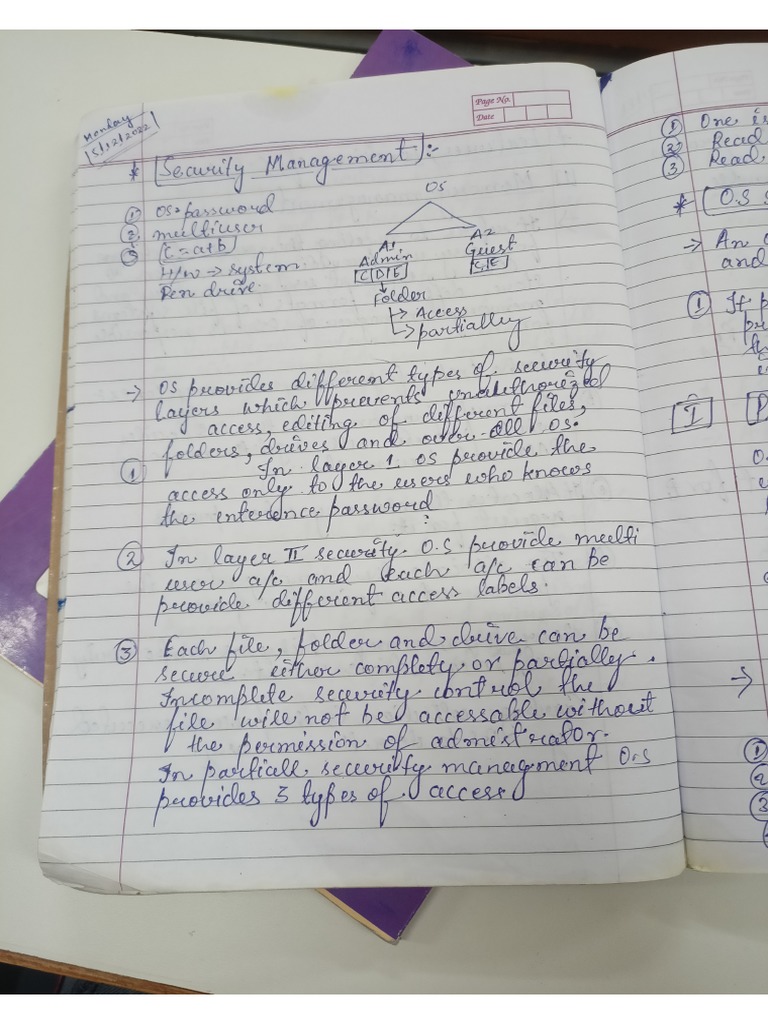 Page No.
Date
Monday
5/12/2022
* Security Management :-
① OS → password
② multiuser
③ C = a+b
H/W → system
Pen drive
OS
A1
Admin
C D E
Folder
→ Access
→ partially
A2
Guest
C E
→ OS provides different types of security
layers which prevents unauthorized
access, editing of different files,
folders, drives and over-all OS.
① In layer 1 OS provide the
access only to the users who knows
the enterence password
② In layer II security O.S provide multi
user a/c and each a/c can be
provide different access labels.
③ Each file, folder and drive can be
secure either complety or partially.
Incomplete security control the
file will not be accessable without
the permission of admistrator.
In partiall security managment O.S
provides 3 types of access
① One is
② Read
③ Read,
* O.S S
→ An
and
① If p
pr
th
I P
O.
→
①
②
③